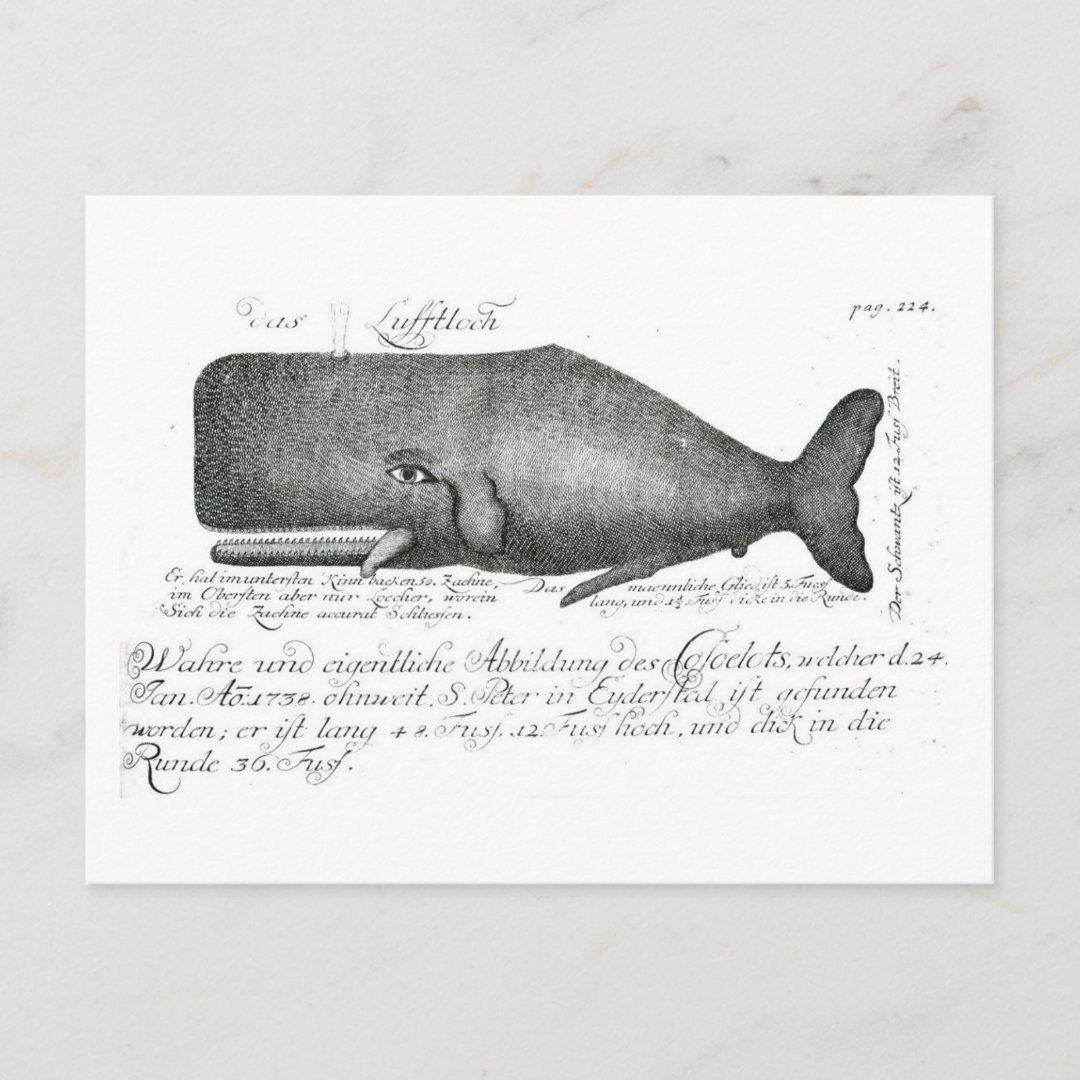 das Lufftloch
pag. 224.
Der Schwantz ist 12 Fuss Breit.
Er hat im untersten Kinn backen 50. Zaehne,
im Obersten aber nur Loecher, worein
Sich die Zaehne accurat Schliessen.
Das maennliche Glied ist 5 Fuess
lang, und 1½ Fuss dicke in die Runde.
Wahre und eigentliche Abbildung des Cosoelots, welcher d. 24.
Jan. Aō: 1738. ohnweit. S. Peter in Eydersted ist gefunden
worden; er ist lang 48. Fuss. 12. Fuss hoch, und dick in die
Runde 36. Fuss.